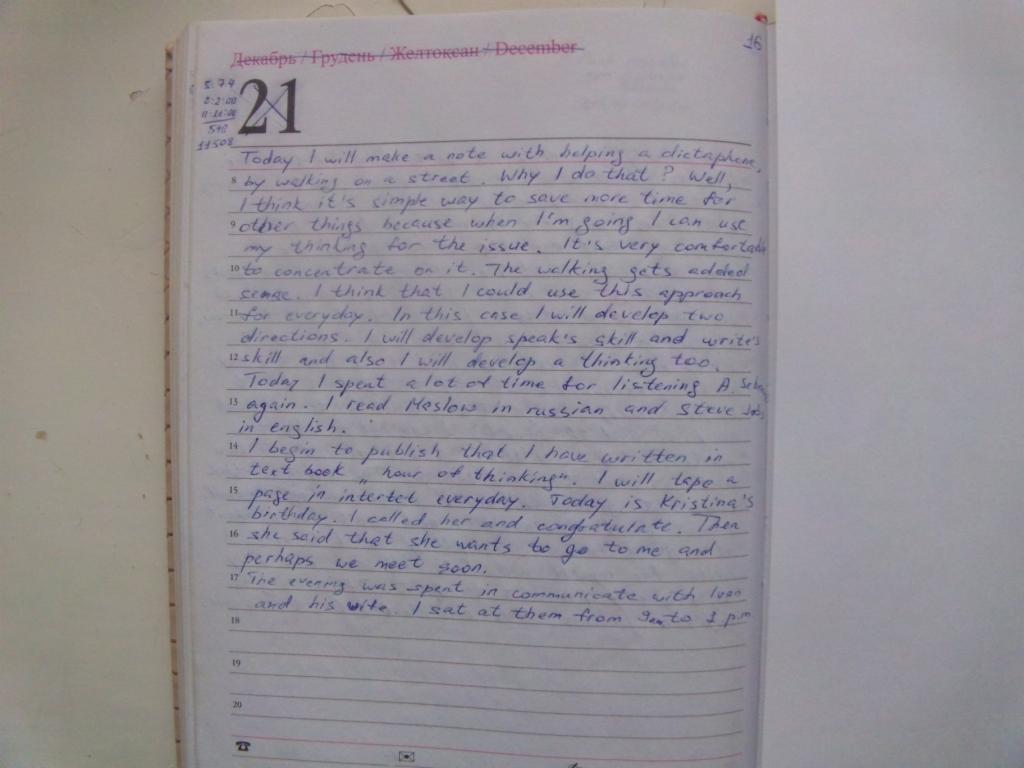 16
Декабрь / Грудень / Желтоқсан / December
21
5:74
2:2:00
11508
Today I will make a note with helping a dictaphone,
8 by walking on a street. Why I do that? Well,
I think it's simple way to save more time for
9 other things because when I'm going I can use
my thinking for the issue. It's very comfortable
10 to concentrate on it. The walking gets added
sense. I think that I could use this approach
11 for everyday. In this case I will develop two
directions. I will develop speak's skill and write's
12 skill and also I will develop a thinking too.
Today I spent a lot of time for listening A.
13 again. I read Maslow in russian and Steve Jobs
in english.
14 I begin to publish that I have written in
text book „hour of thinking". I will tape a
15 page in intertet everyday. Today is Kristina's
birthday. I called her and congratulate. Then
16 she said that she wants to go to me and
perhaps we meet soon.
17 The evening was spent in communicate with Ivan
and his wife. I sat at them from to 1 p.m
18
19
20